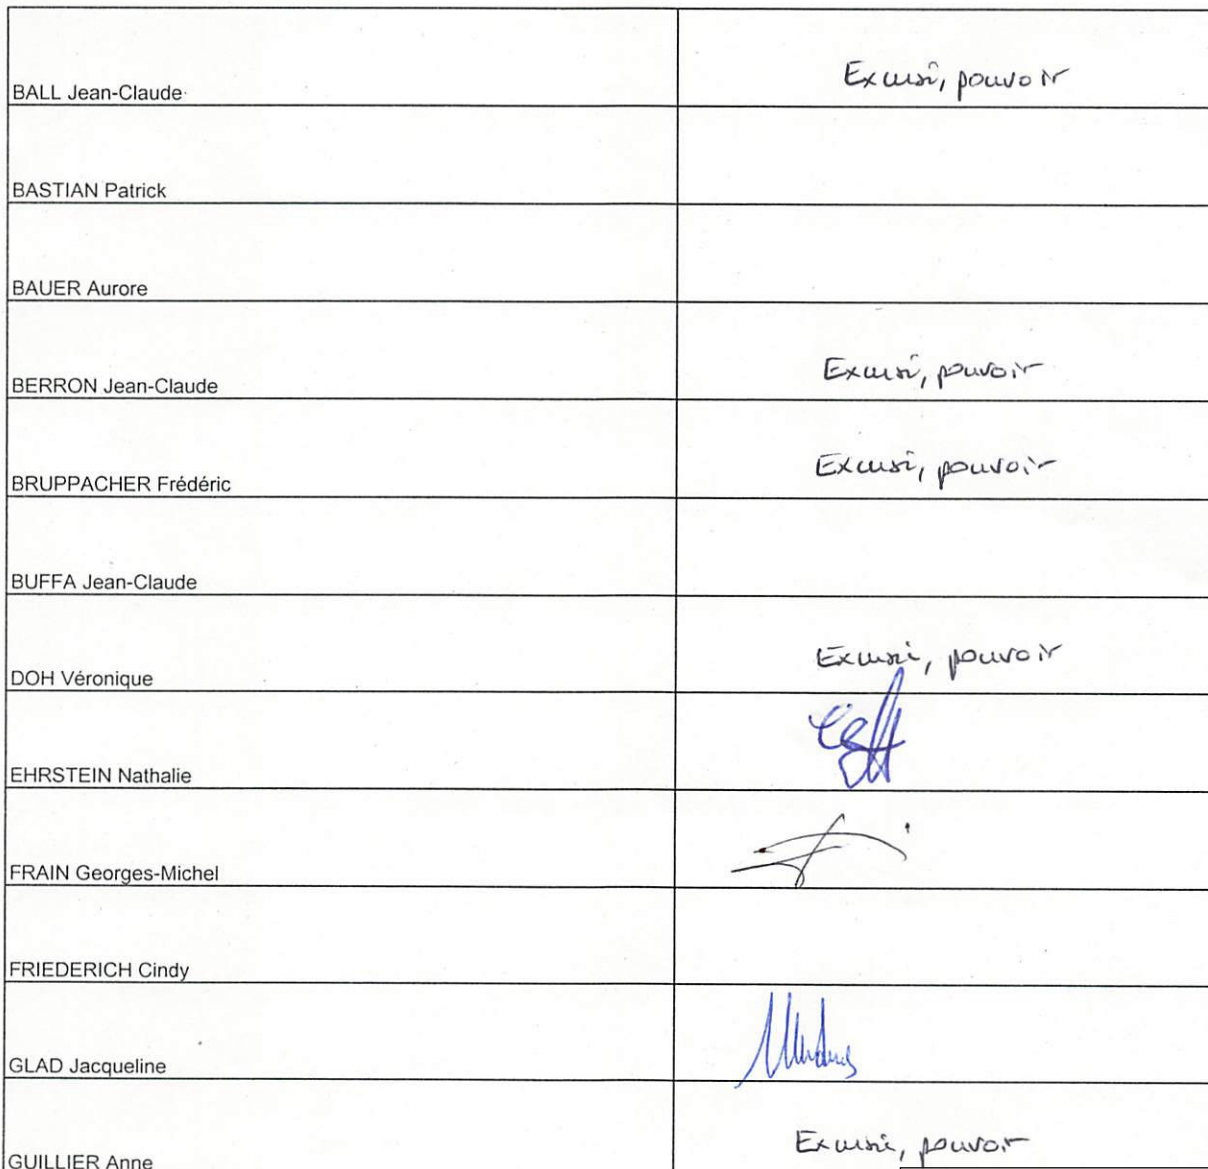 BALL Jean-Claude
Excusé, pouvoir
BASTIAN Patrick
BAUER Aurore
BERRON Jean-Claude
Excusé, pouvoir
BRUPPACHER Frédéric
Excusé, pouvoir
BUFFA Jean-Claude
DOH Véronique
Excusé, pouvoir
EHRSTEIN Nathalie
FRAIN Georges-Michel
FRIEDERICH Cindy
GLAD Jacqueline
GUILLIER Anne
Excusée, pouvoir